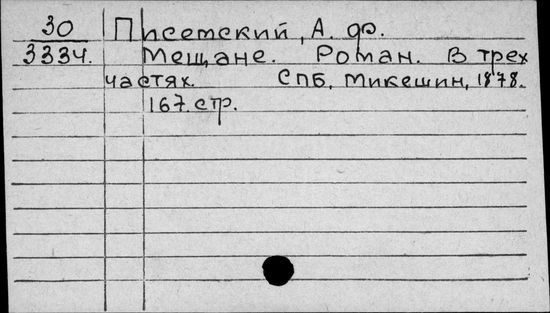 30 Писемский, А. Ф.
3334. Мещане. Роман. В трех
частях. СПб, Микешин, 1878.
167 стр.